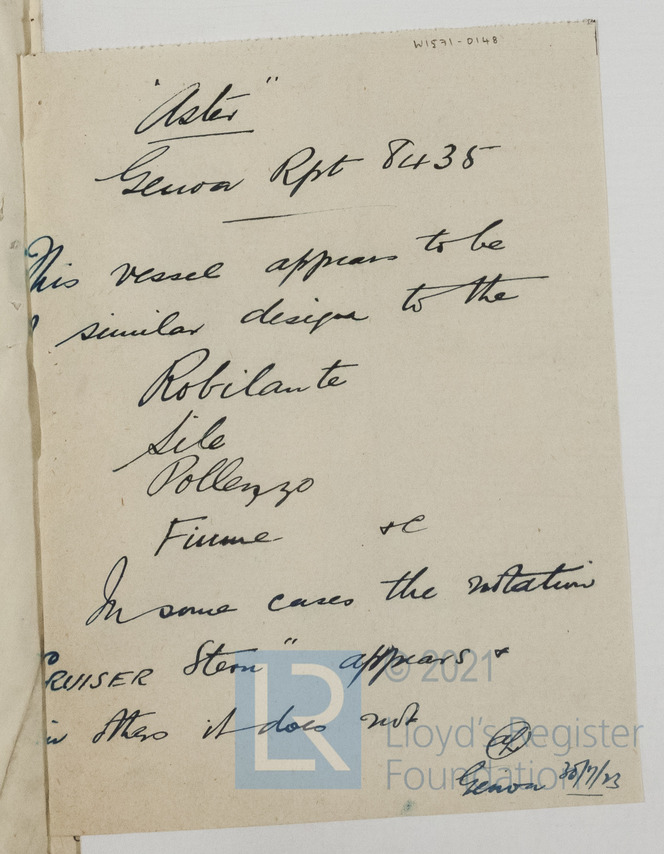 W1571-0148
"Aster"
Genoa Rpt 8435
This vessel appears to be
similar design to the
Robilante
Sile
Pollenzo
Fiume &c
In some cases the notation
CRUISER Stern" appears &
in others it does not
Genoa 30/7/23
© 2021
Lloyd's Register
Foundation
LR